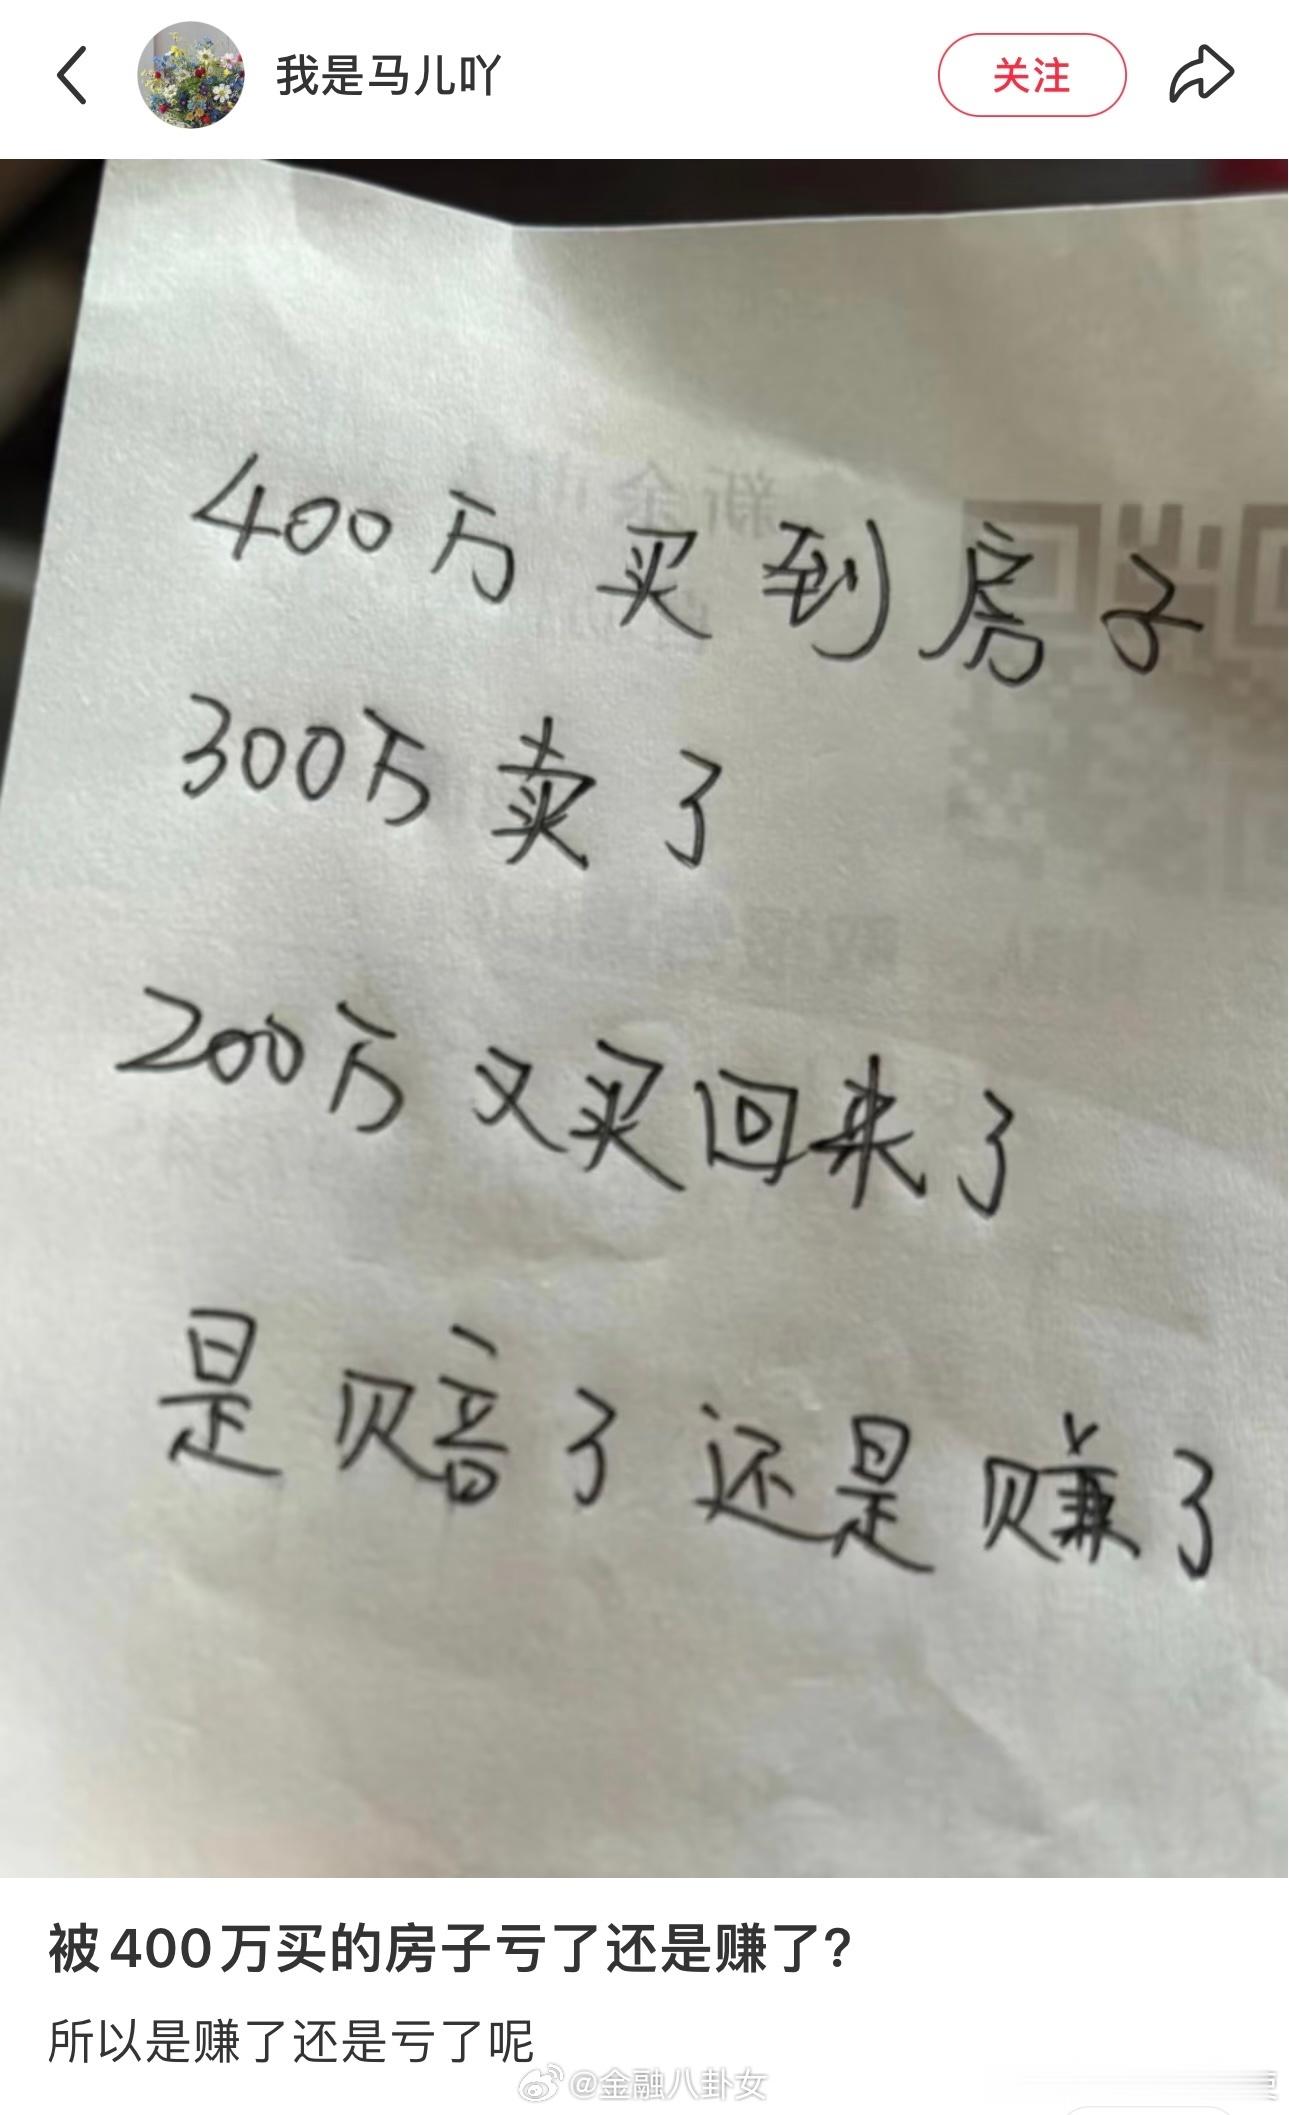 我是马儿吖
关注
400万买到房子
300万卖了
200万又买回来了
是赔了还是赚了
被400万买的房子亏了还是赚了?
所以是赚了还是亏了呢
@金融八卦女